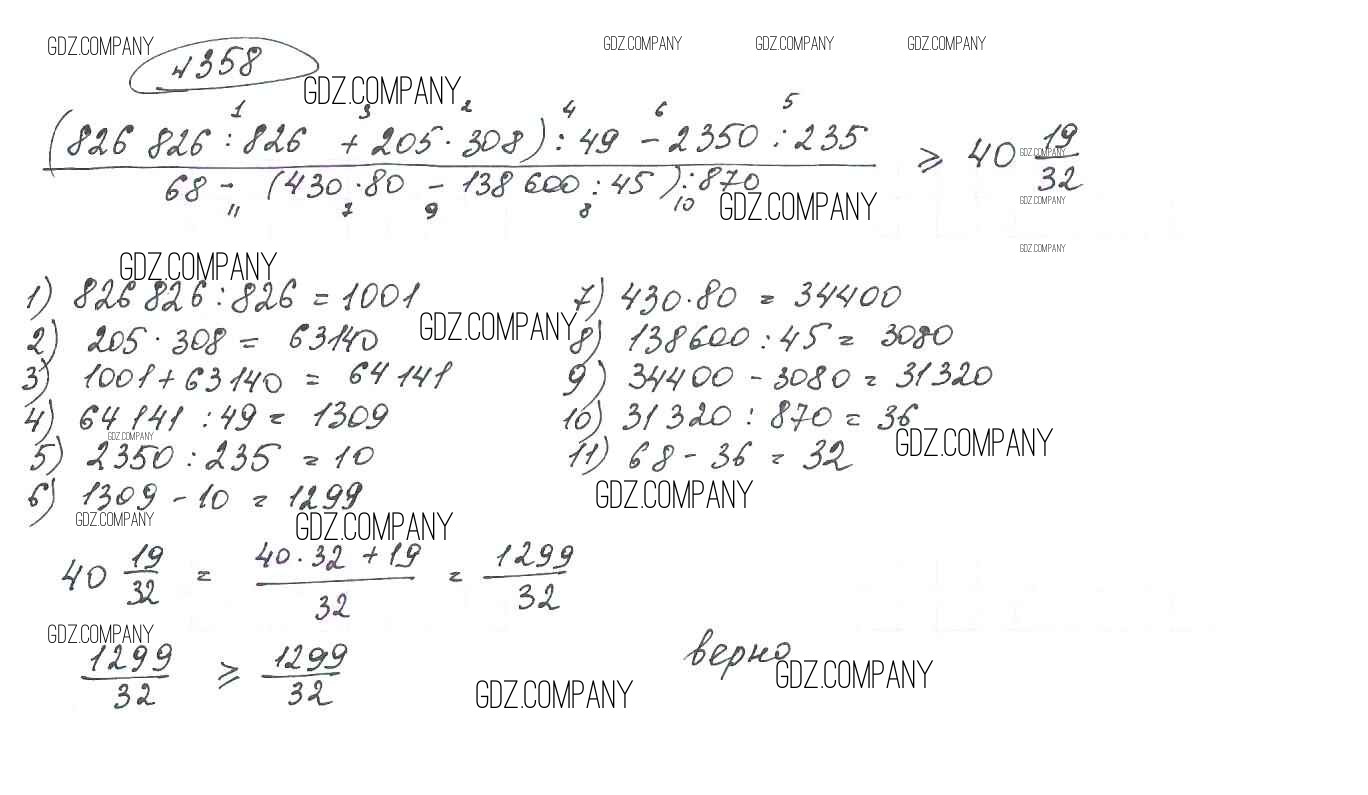 GDZ.COMPANY GDZ.COMPANY GDZ.COMPANY GDZ.COMPANY
№358
GDZ.COMPANY
1 3 2 4 6 5
(826 826 : 826 + 205 · 308) : 49 - 2350 : 235 ⩾ 40 19/32
GDZ.COMPANY
68 - (430 · 80 - 138 600 : 45) : 870
11 7 9 8 10
GDZ.COMPANY GDZ.COMPANY
GDZ.COMPANY
GDZ.COMPANY
1) 826 826 : 826 = 1001
7) 430 · 80 = 34400
GDZ.COMPANY
2) 205 · 308 = 63140
8) 138600 : 45 = 3080
3) 1001 + 63140 = 64 141
9) 34400 - 3080 = 31320
4) 64 141 : 49 = 1309
10) 31 320 : 870 = 36
GDZ.COMPANY GDZ.COMPANY
5) 2350 : 235 = 10
11) 68 - 36 = 32
6) 1309 - 10 = 1299
GDZ.COMPANY
GDZ.COMPANY GDZ.COMPANY
40 19/32 = 40 · 32 + 19/32 = 1299/32
GDZ.COMPANY
1299/32 ⩾ 1299/32 верно
GDZ.COMPANY
GDZ.COMPANY